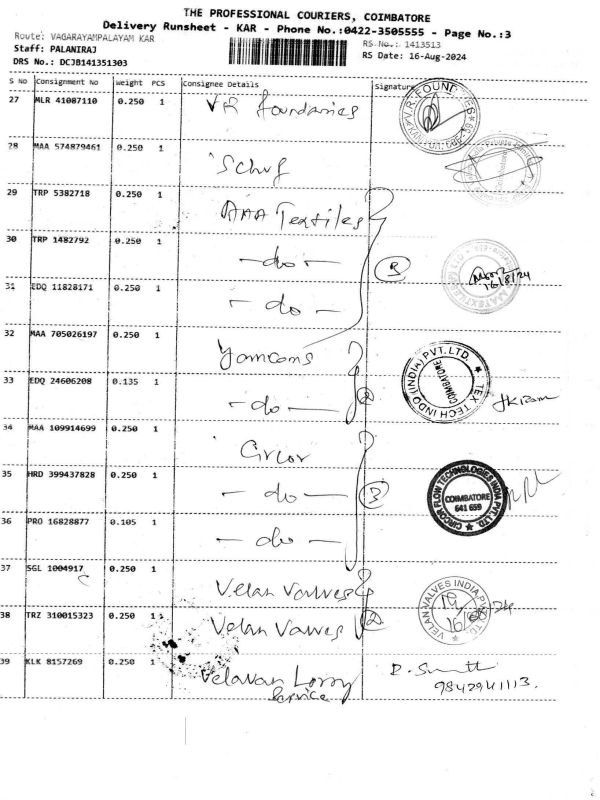 THE PROFESSIONAL COURIERS, COIMBATORE
Delivery Runsheet - KAR - Phone No.:0422-3505555 - Page No.:3
Route: VAGARAYAMPALAYAM KAR RS No.: 1413513
Staff: PALANIRAJ RS Date: 16-Aug-2024
DRS No.: DCJB141351303
S No Consignment No Weight PCS Consignee Details Signature
27 MLR 41087110 0.250 1 VR foundaries
28 MAA 574879461 0.250 1
29 TRP 5382718 0.250 1 AAA Textiles
30 TRP 1482792 0.250 1 -do- 3
31 EDQ 11828171 0.250 1 -do- 16/8/24
32 MAA 705026197 0.250 1
TEX TECH IND (INDIA) PVT. LTD. COIMBATORE
33 EDQ 24606208 0.135 1 -do- 2
34 MAA 109914699 0.250 1 Circor
35 HRD 399437828 0.250 1 -do- 3
CIRCOR FLOW TECHNOLOGIES INDIA PVT. LTD. COIMBATORE 641 659
36 PRO 16828877 0.105 1 -do-
37 SGL 1004917 0.250 1 Velan Valves
VELAN VALVES INDIA PVT LTD.
38 TRZ 310015323 0.250 1 Velan Valves 2
39 KLK 8157269 0.250 1 Velavan Lorry
Service
9842941113.